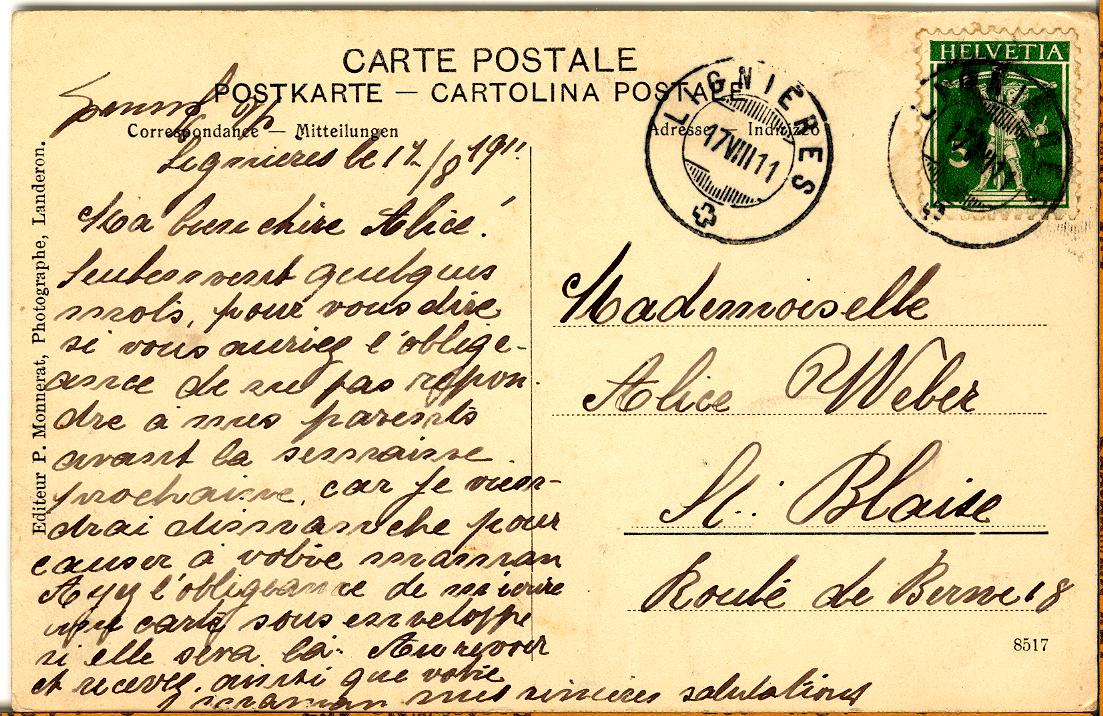 CARTE POSTALE
POSTKARTE — CARTOLINA POSTALE
Correspondance — Mitteilungen
Adresse — Indirizzo
HELVETIA
5
LIGNIÈRES
17 VIII 11
Editeur P. Monnerat, Photographe, Landeron.
Lignières le 17/8 1911
Ma bien chère Alice!
Seulement quelques
mots, pour vous dire
si vous auriez l'oblige-
ance de ne pas répon-
dre à mes parents
avant la semaine
prochaine, car je vien-
drai dimanche pour
causer à votre maman
Ayez l'obligeance de m'écrire
une carte sous enveloppe
si elle sera là. Au revoir
et recevez, ainsi que votre
maman mes sincères salutations
Mademoiselle
Alice Weber
St. Blaise
Route de Berne 18
8517